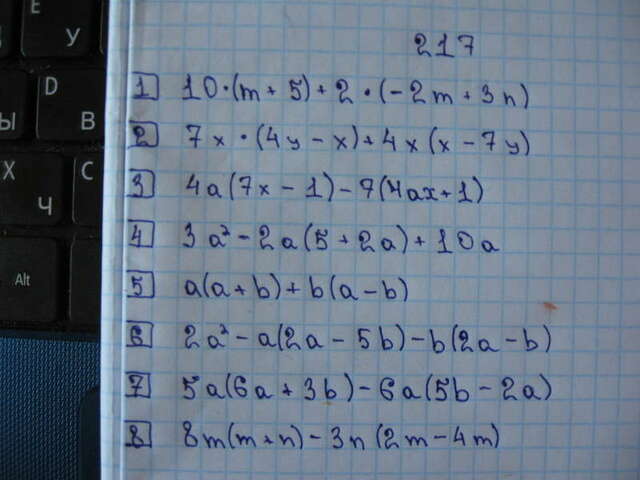 217
1 10·(m+5)+2·(-2m+3n)
2 7x·(4y-x)+4x(x-7y)
3 4a(7x-1)-7(4ax+1)
4 3a²-2a(5+2a)+10a
5 a(a+b)+b(a-b)
6 2a²-a(2a-5b)-b(2a-b)
7 5a(6a+3b)-6a(5b-2a)
8 8m(m+n)-3n(2m-4m)
Е У
D В
Ы
X Ч
C
Alt